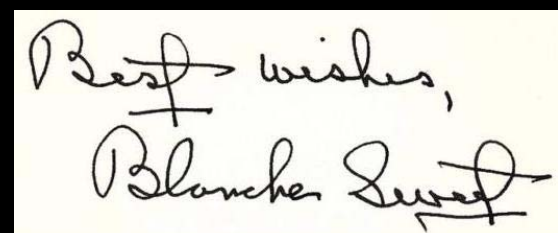 Best wishes,
Blanche Sweet